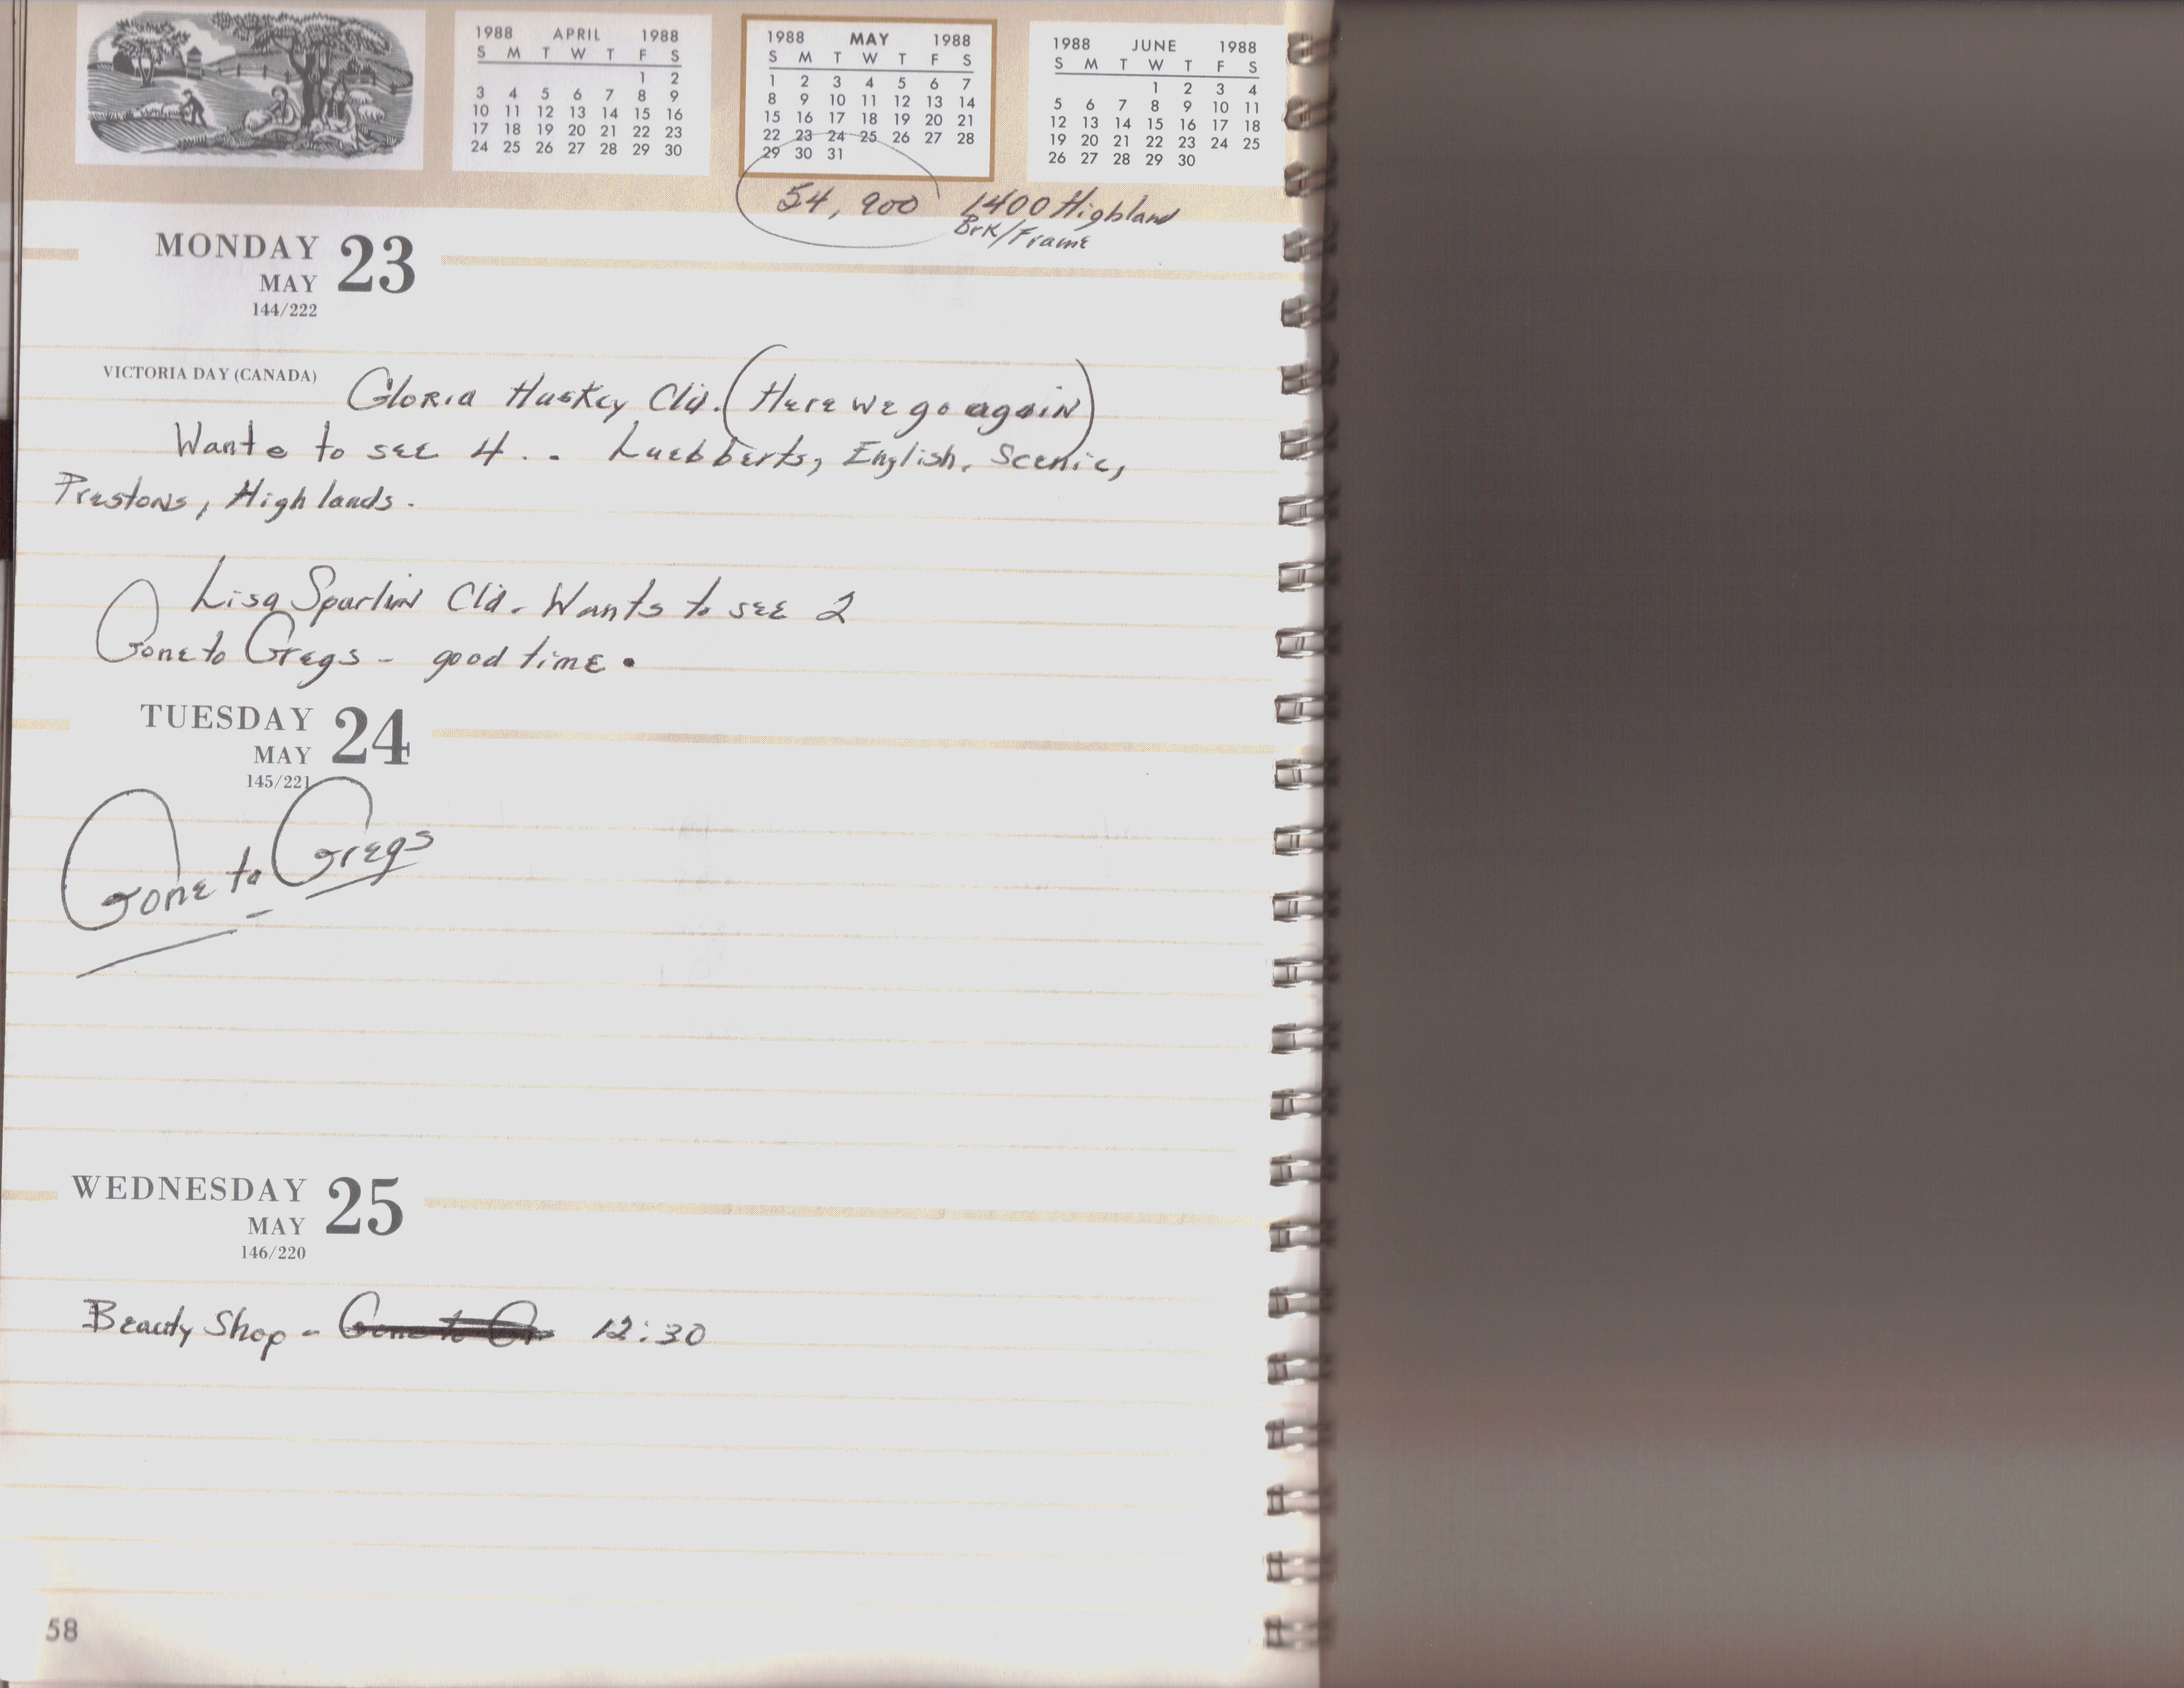 1988 APRIL 1988
S M T W T F S
1 2
3 4 5 6 7 8 9
10 11 12 13 14 15 16
17 18 19 20 21 22 23
24 25 26 27 28 29 30
1988 MAY 1988
S M T W T F S
1 2 3 4 5 6 7
8 9 10 11 12 13 14
15 16 17 18 19 20 21
22 23 24 25 26 27 28
29 30 31
1988 JUNE 1988
S M T W T F S
1 2 3 4
5 6 7 8 9 10 11
12 13 14 15 16 17 18
19 20 21 22 23 24 25
26 27 28 29 30
54,900 1400 Highland
Brk/Frame
MONDAY 23
MAY
144/222
VICTORIA DAY (CANADA)
Gloria Huskey Cld. (Here we go again)
Wants to see 4 . . Luebberts, English, Scenic,
Prestons, Highlands.
Lisa Sparlin Cld. Wants to see 2
Gone to Gregs - good time.
TUESDAY 24
MAY
145/221
Gone to Gregs
WEDNESDAY 25
MAY
146/220
Beauty Shop - Gone to Gr 12:30
58